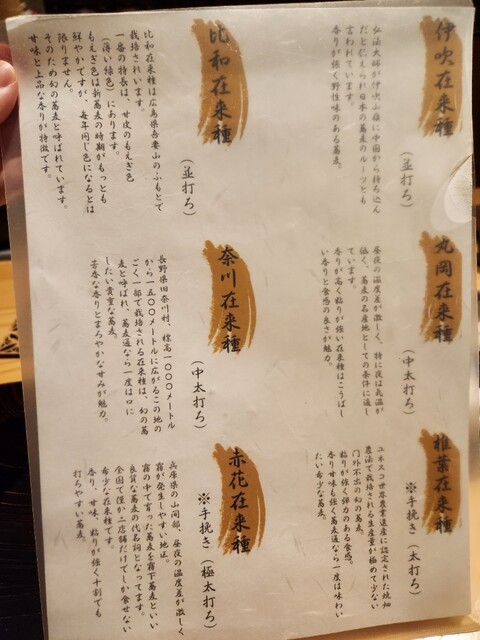 伊吹在来種
(並打ち)
弘法大師が伊吹山麓に中国から持ち込ん
だと伝えられ日本の蕎麦のルーツとも
言われています。
香りが強く野性味のある蕎麦。
比和在来種
(並打ち)
比和在来種は広島県吾妻山のふもとで
栽培されています。
一番の特長は、甘皮のもえぎ色
(薄い緑色)にあります。
もえぎ色は新蕎麦の時期がもっとも
鮮やかですが、毎年同じ色になるとは
限りません。
そのため幻の蕎麦と呼ばれています。
甘味と上品な香りが特徴です。
丸岡在来種
(中太打ち)
昼夜の温度差が激しく、特に夜は気温が
低く、蕎麦の名産地としての条件に適し
ています。
香りが高く粘りが強い在来種はこうばし
い香りと食感の良さが魅力。
奈川在来種
(中太打ち)
長野県旧奈川村、標高一〇〇〇メートル
から一五〇〇メートルに広がるこの地の
ごく一部で栽培される在来種は、幻の蕎
麦と呼ばれ、蕎麦通なら一度は口に
したい貴重な蕎麦。
芳香な香りとまろやかな甘みが魅力。
椎葉在来種
※手挽き(太打ち)
ユネスコ世界農業遺産に認定された焼畑
農法で栽培される生産量が極めて少ない
門外不出の幻の蕎麦。
粘りが強く弾力のある食感。
香り甘味も強く蕎麦通なら一度は味わい
たい希少な蕎麦。
赤花在来種
※手挽き(極太打ち)
兵庫県の山間部、昼夜の温度差が激しく
霧が発生しやすい地区。
霧の中で育った蕎麦を霧下蕎麦といい
良質な蕎麦の代名詞となってます。
全国で僅か二店舗だけでしか食せない
希少な在来種です。
香り、甘味、粘りが強く十割でも
打ちやすい蕎麦。